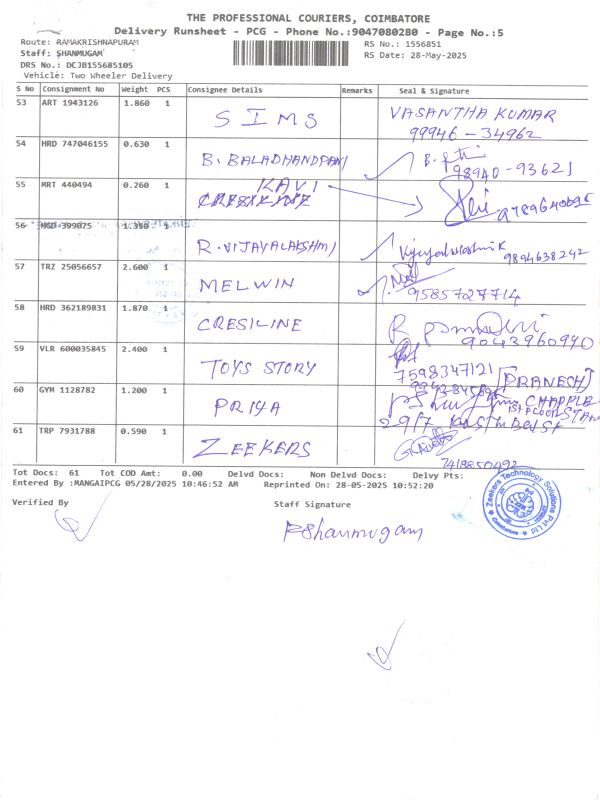 THE PROFESSIONAL COURIERS, COIMBATORE
Delivery Runsheet - PCG - Phone No.:9047080280 - Page No.:5
Route: RAMAKRISHNAPURAM
RS No.: 1556851
Staff: SHANMUGAM
RS Date: 28-May-2025
DRS No.: DCJB155685105
Vehicle: Two Wheeler Delivery
S No Consignment No Weight PCS Consignee Details Remarks Seal & Signature
53 ART 1943126 1.860 1 SIMS VASANTHA KUMAR
99946 - 34962
54 HRD 747046155 0.630 1 B. BALADHANDPANI
98940 - 93621
55 MRT 440494 0.260 1 KAVI
56 399075 1.350 R. VIJAYALAKSHMI
9894638242
57 TRZ 25056657 2.600 1 MELWIN
9585727714
58 HRD 362189831 1.870 1 CRESILINE
9043960990
59 VLR 600035845 2.400 1 TOYS STORY
7598347121 [PRANESH]
60 GYM 1128782 1.200 1 PRIYA
61 TRP 7931788 0.590 1 ZEEKERS
7418850492
Tot Docs: 61 Tot COD Amt: 0.00 Delvd Docs: Non Delvd Docs: Delvy Pts:
Entered By :MANGAIPCG 05/28/2025 10:46:52 AM Reprinted On: 28-05-2025 10:52:20
Verified By Staff Signature
Zeekers Technology Solutions Pvt Ltd
Coimbatore
PShanmugam